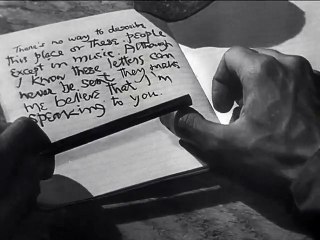 There's no way to describe
this place or these people
except in music. Although
I know these letters can
never be sent they make
me believe that I'm
speaking to you.